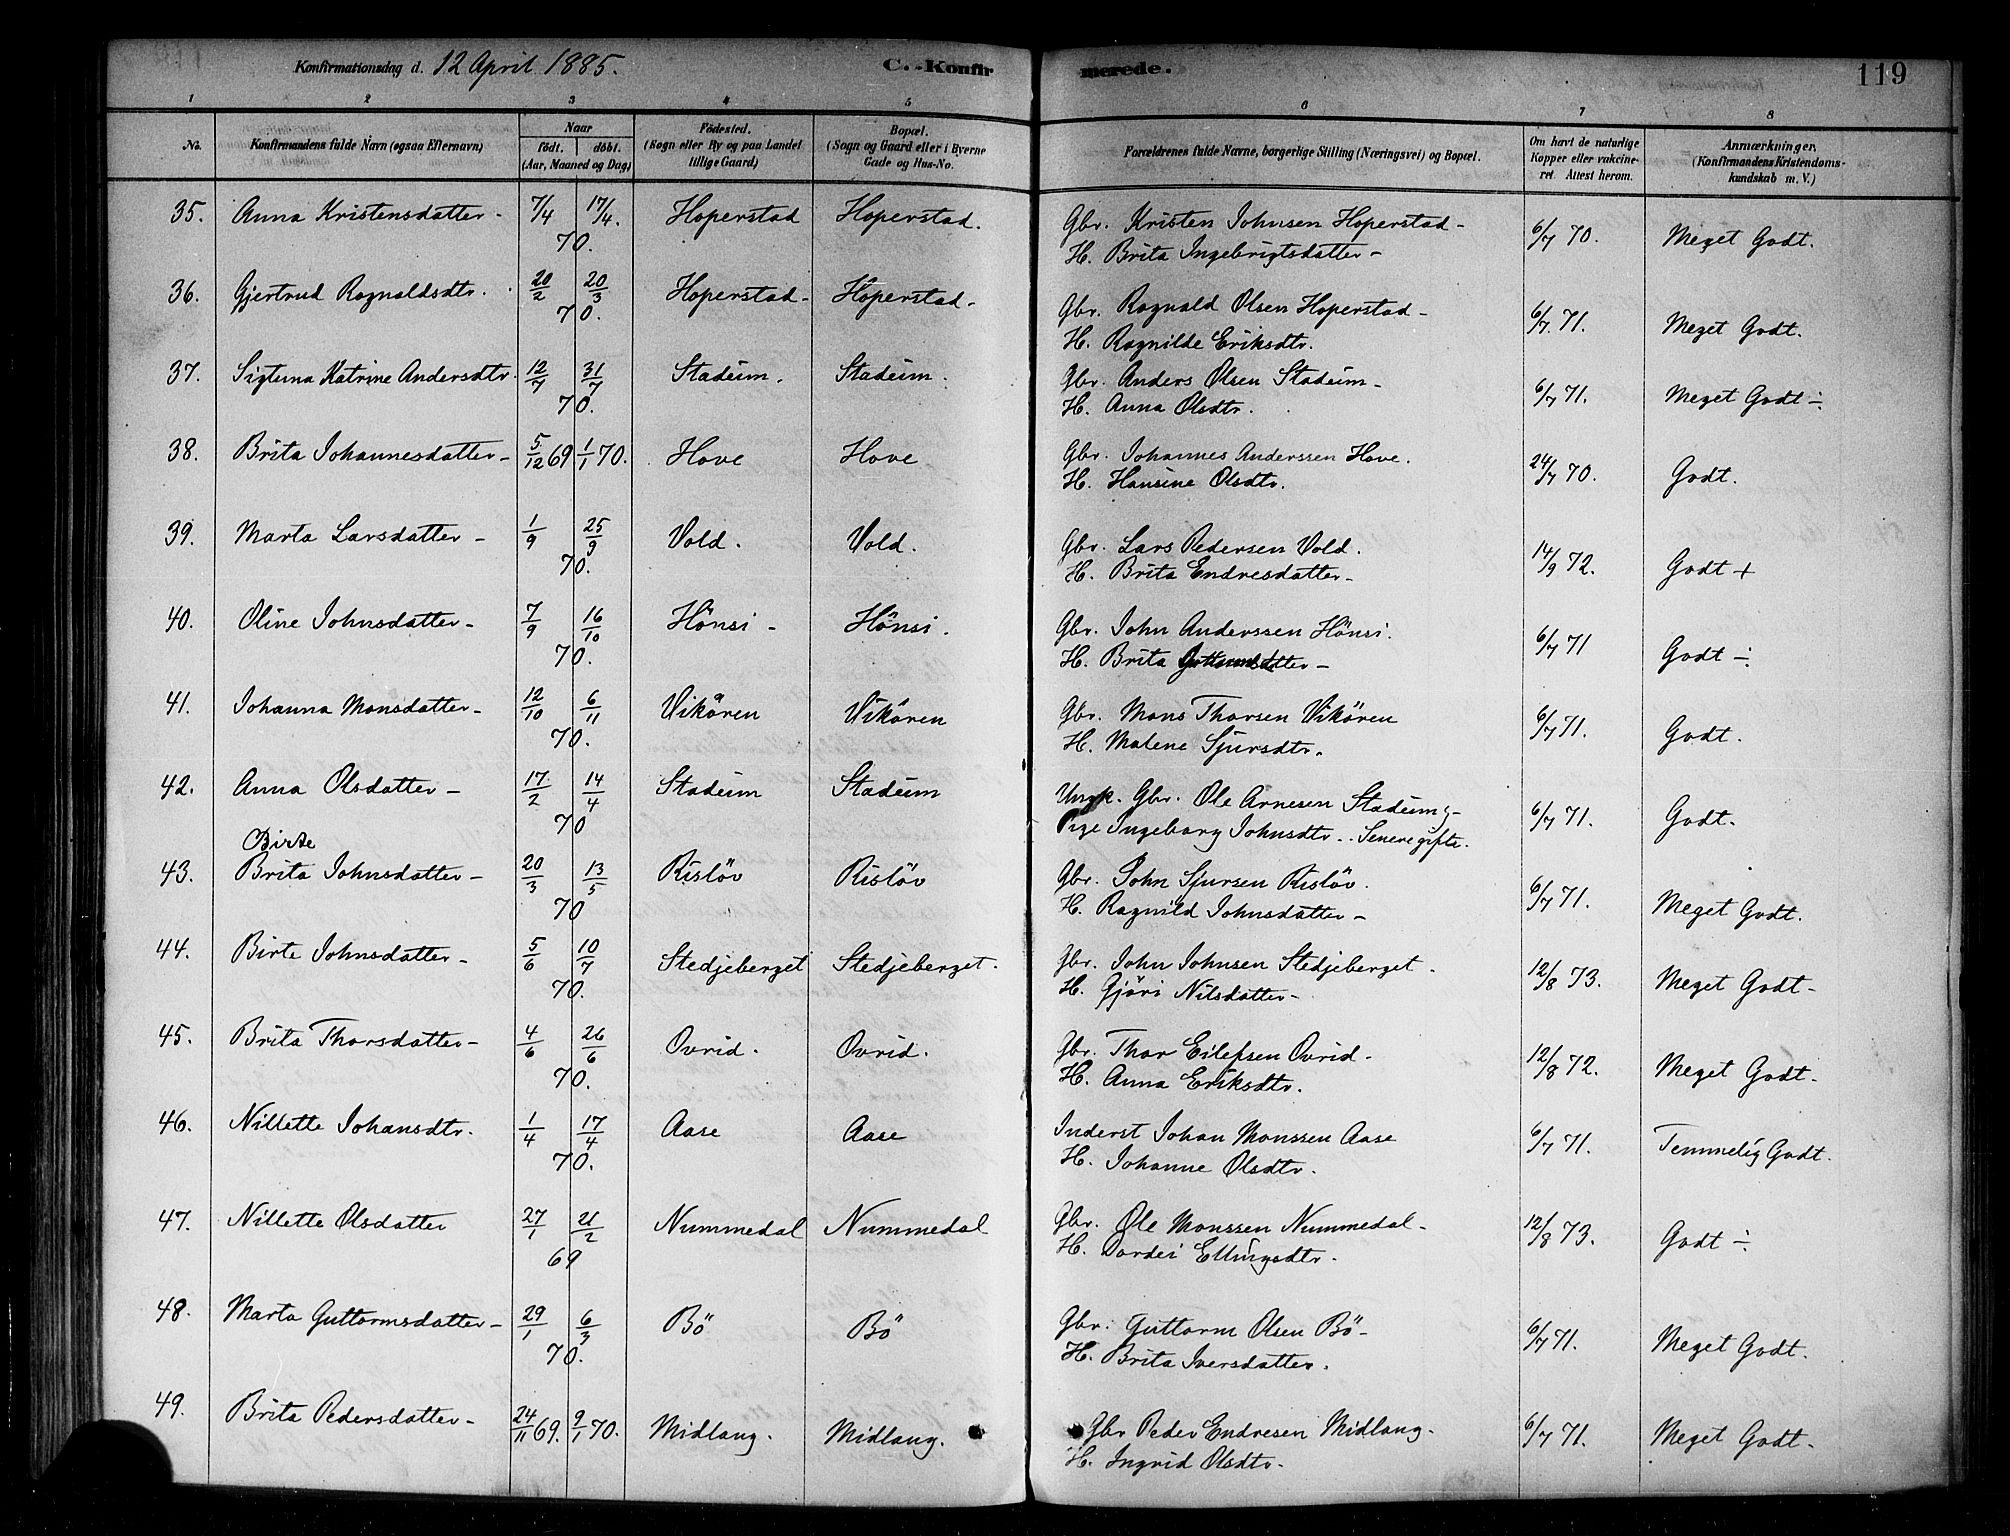 Konfirmationsdag d. 12 April 1885. C. Konfirmerede. 119
1 2 3 4 5 6 7 8
No. Konfirmandens fulde Navn (ogsaa Efternavn) Naar født. døbt. (Aar, Maaned og Dag) Fødested. (Sogn eller By og paa Landet tillige Gaard) Bopæl. (Sogn og Gaard eller i Byerne Gade og Hus-No. Forældrenes fulde Navne, borgerlige Stilling (Næringsvei) og Bopæl. Om havt de naturlige Kopper eller vakcineret. Attest herom. Anmærkninger. (Konfirmandens Kristendomskundskab m. V.)
35. Anna Kristensdatter - 7/4 17/4. 70. Hoperstad Hoperstad. Gbr. Kristen Johnsen Hoperstad - 6/7 70. Meget Godt.
H. Brita Ingebrigtsdatter -
36. Gjertrud Ragnaldsdtr. 20/2 20/3 70. Hoperstad - Hoperstad - Gbr. Ragnald Olsen Hoperstad - 6/7. 71. Meget Godt.
H. Ragnilde Eriksdtr.
37. Sigtuna Katrine Andersdtr. 12/7 31/7 70. Stadeim. Stadeim. Gbr. Anders Olsen Stadeim - 6/7 71. Meget Godt ÷
H. Anna Olsdtr.
38. Brita Johannesdatter - 5/12 69 1/1 70. Hove Hove Gbr. Johannes Anderssen Hove. 24/7 70. Godt.
H. Hansine Olsdtr.
39. Marta Larsdatter - 1/9 25/9 70. Vold. Vold. Gbr. Lars Pedersen Vold. 14/9 72. Godt +
H. Brita Endresdatter -
40. Oline Johnsdatter - 7/9 16/10 70. Hönsi - Hönsi. Gbr. John Anderssen Hönsi. 6/7 71 Godt ÷
H. Brita Guttormsdatter -
41. Johanna Monsdatter - 12/10 6/11 70. Vikören Vikören Gbr. Mons Thorsen Vikören 6/7 71. Godt.
H. Malene Sjursdtr.
42. Anna Olsdatter - 17/2 14/4 70 Stadeim Stadeim Ungk. Gbr. Ole Arnesen Stadeim 6/7 71. Godt.
Pige Ingeborg Johnsdtr - . Senere gifte.
Birte
43. Brita Johnsdatter - 20/3 13/5 70 Rislöv Rislöv Gbr. John Sjursen Rislöv. 6/7 71. Meget Godt.
H. Ragnild Johnsdatter -
44. Birte Johnsdatter - 5/6 10/7 70. Stedjeberget Stedjeberget. Gbr. John Johnsen Stedjeberget. 12/8 73. Meget Godt -
H. Gjöri Nilsdatter -
45. Brita Thorsdatter - 4/6 26/6 70. Ovrid. Ovrid. Gbr. Thor Eilefsen Ovrid - 12/8 72. Meget Godt.
H. Anna Eriksdtr.
46. Nillette Johansdtr. 1/4 17/4 70. Aase Aase Inderst Johan Monssen Aase 6/7 71. Temmelig Godt.
H. Johanne Olsdtr.
47. Nillette Olsdatter 27/1 21/2 69 Nummedal Nummedal Gbr. Ole Monssen Nummedal - 12/8 73. Godt ÷
H. Dordei Ellingsdtr.
48. Marta Guttormsdatter - 29/1 6/3 70. Bö Bö Gbr. Guttorm Olsen Bö - 6/7 71. Meget Godt.
H. Brita Iversdatter.
49. Brita Pedersdatter - 24/11 69. 9/1 70. Midlang. Midlang. Gbr Peder Endresen Midlang. 6/7 71. Meget Godt.
H. Ingrid Olsdtr.